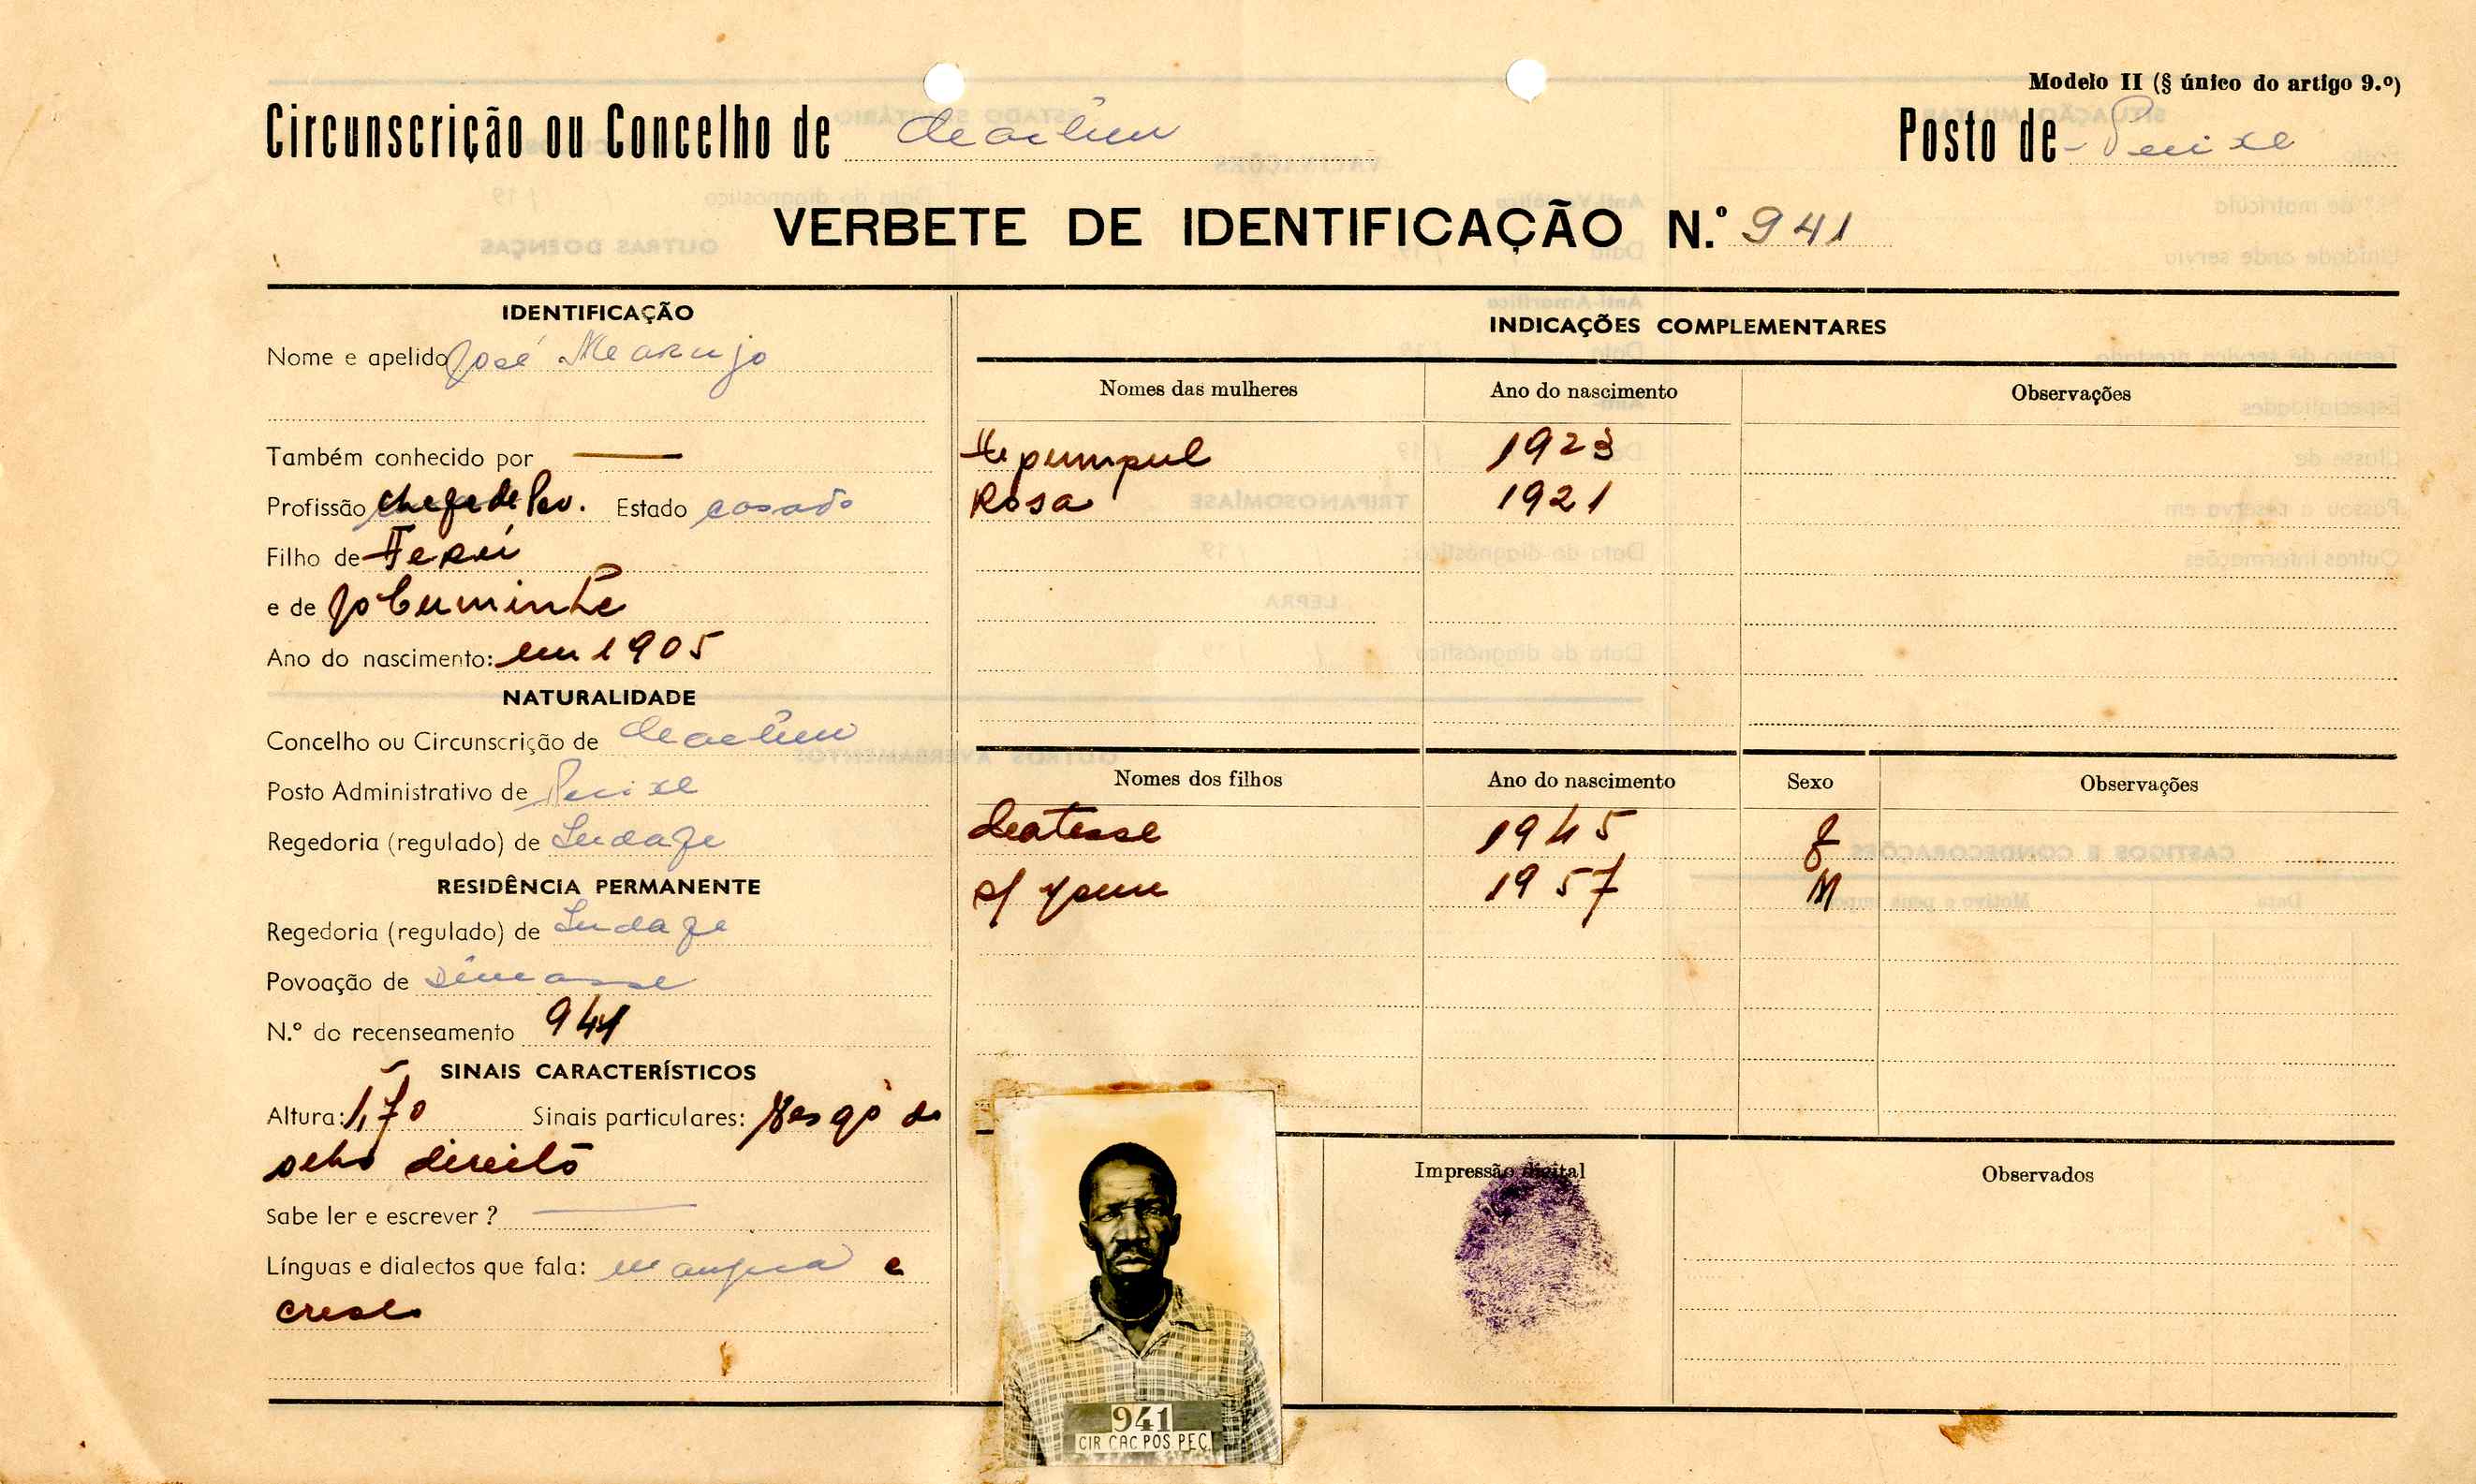 Modelo II (§ único do artigo 9.º)
Circunscrição ou Concelho de Cacheu Posto de Pecixe
VERBETE DE IDENTIFICAÇÃO N.º 941
IDENTIFICAÇÃO
Nome e apelido José
Também conhecido por —
Profissão chefe de Pov. Estado casado
Filho de
e de
Ano do nascimento: em 1905
NATURALIDADE
Concelho ou Circunscrição de Cacheu
Posto Administrativo de Pecixe
Regedoria (regulado) de
RESIDÊNCIA PERMANENTE
Regedoria (regulado) de
Povoação de
N.º do recenseamento 941
SINAIS CARACTERÍSTICOS
Altura: 1,70 Sinais particulares: Rasgo do
olho direito
Sabe ler e escrever? —
Línguas e dialectos que fala: manjaca e
creolo
INDICAÇÕES COMPLEMENTARES
Nomes das mulheres Ano do nascimento Observações
1923
Rosa 1921
Nomes dos filhos Ano do nascimento Sexo Observações
1945 f
1957 M
Impressão digital
Observados
941
CIR CAC POS PEC